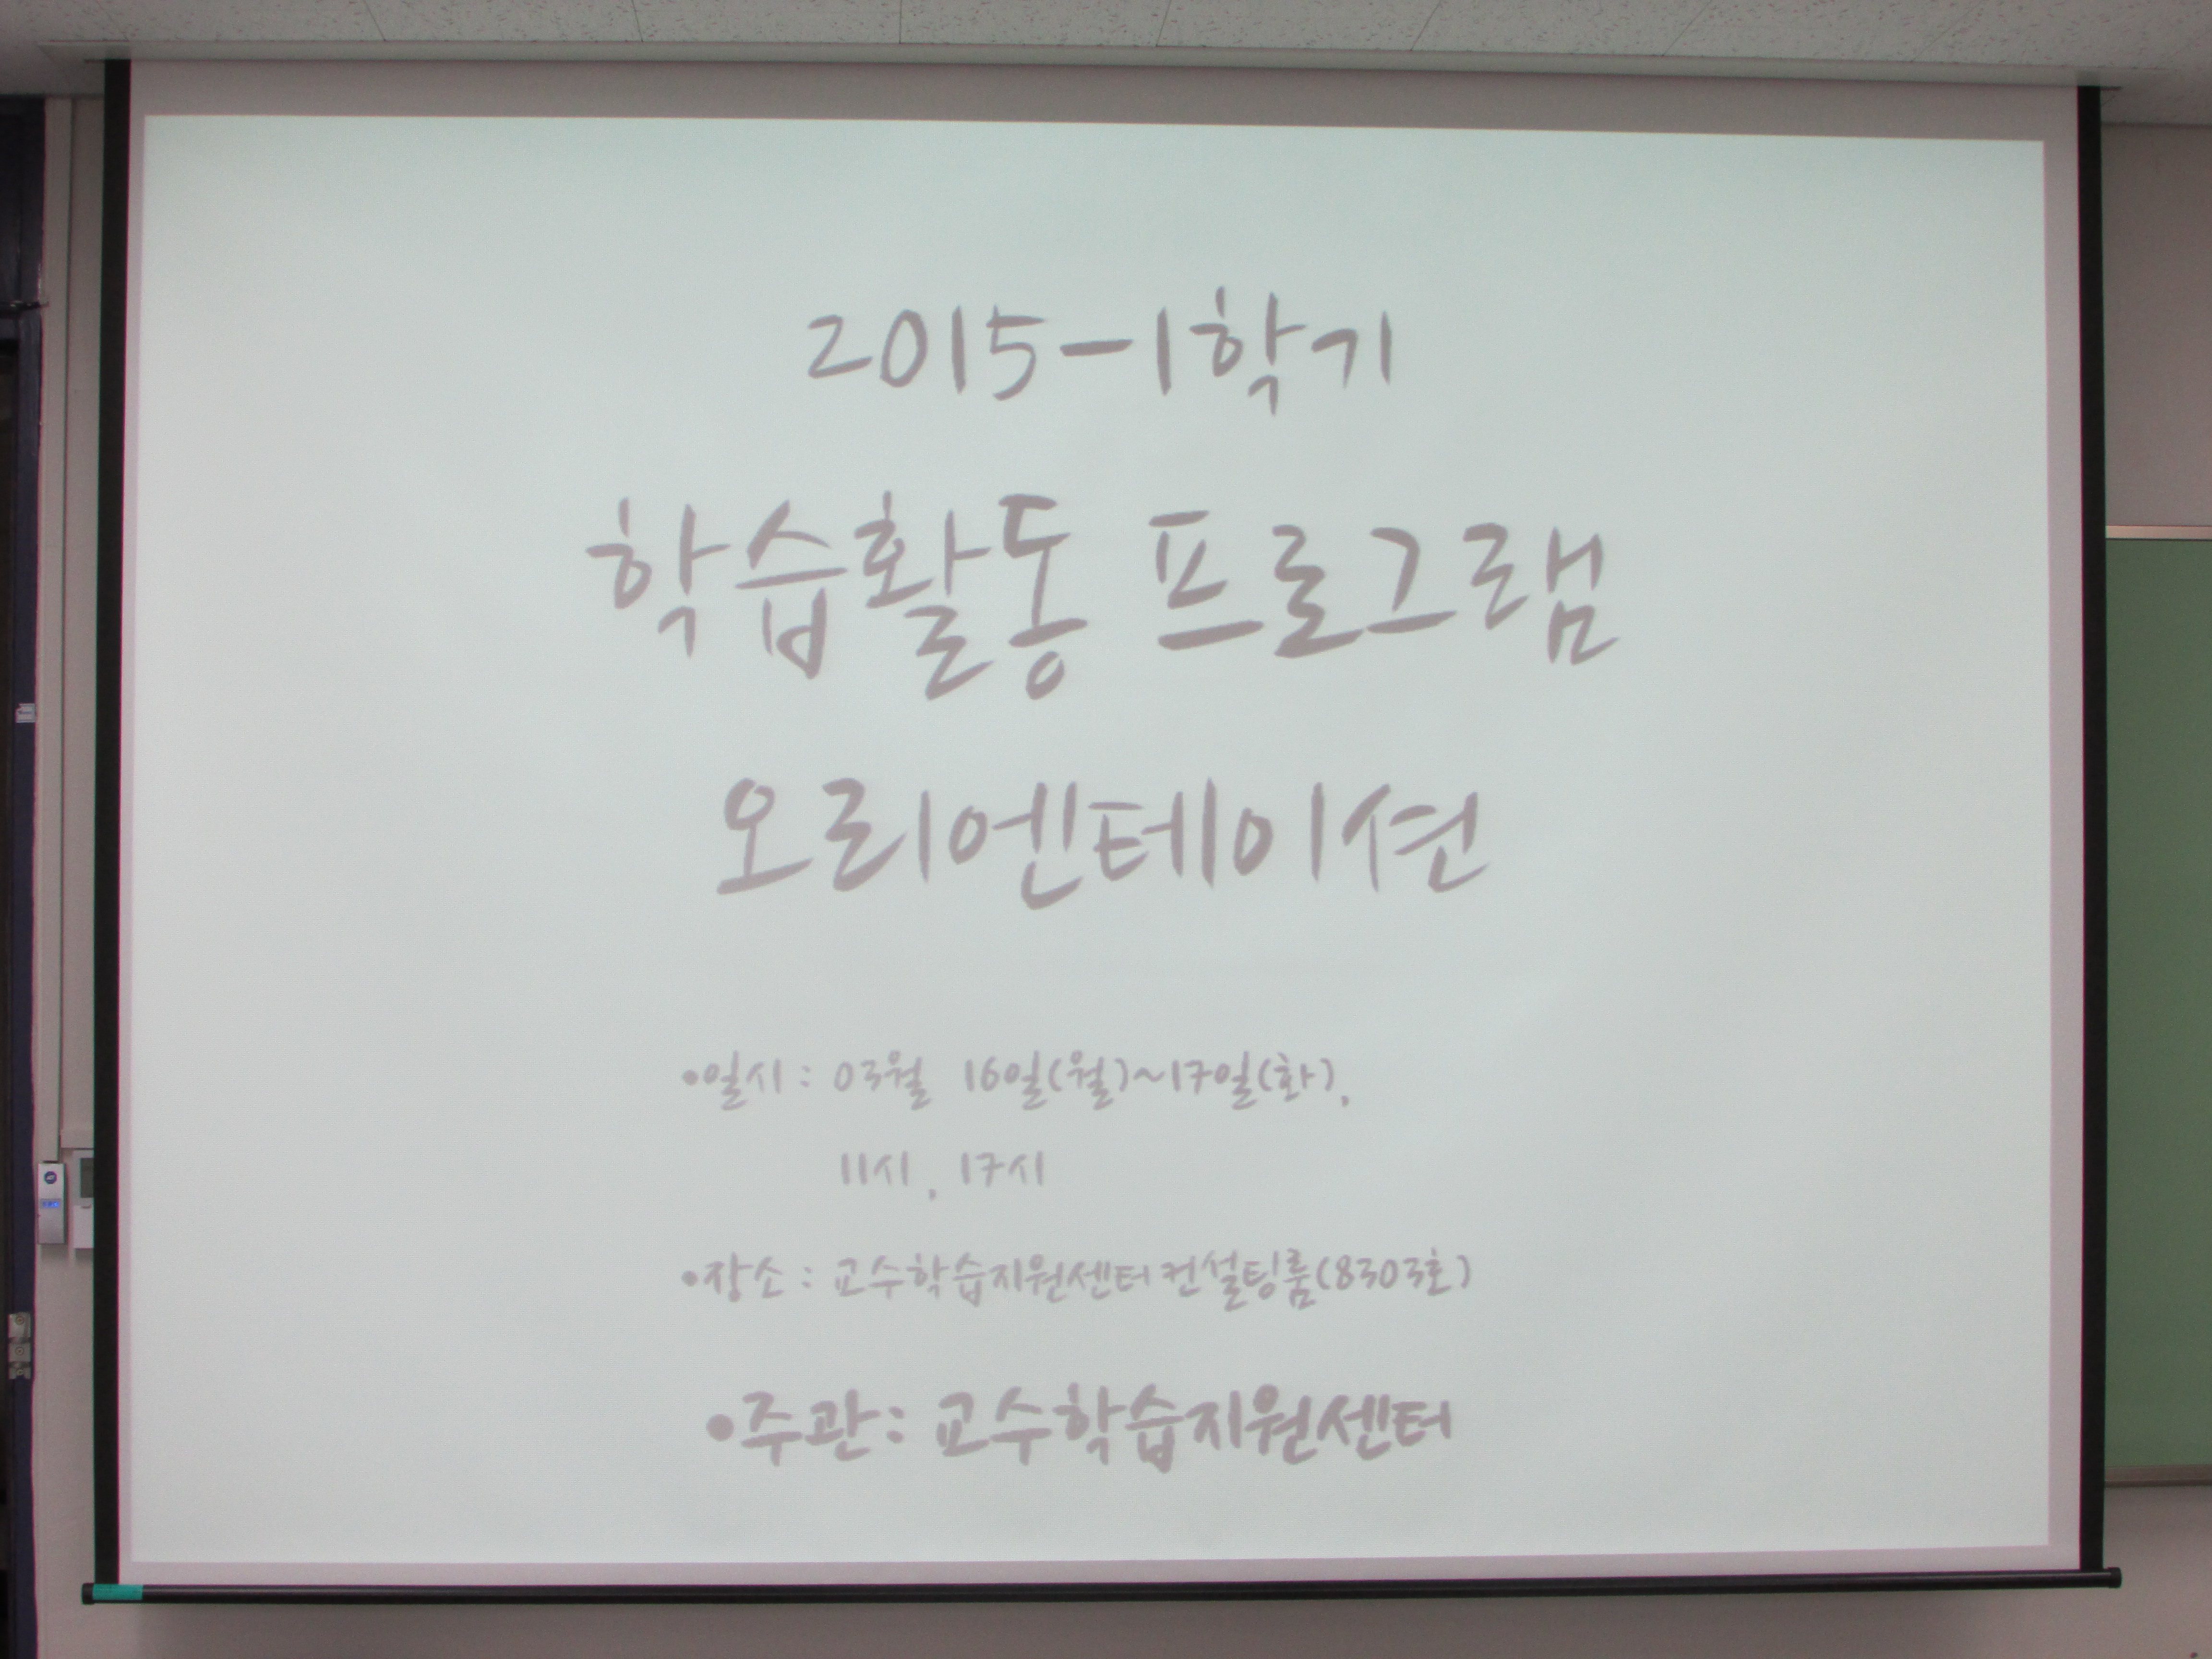 2015-1학기
학습활동 프로그램
오리엔테이션
•일시 : 03월 16일(월)~17일(화),
11시, 17시
•장소 : 교수학습지원센터 컨설팅룸(8303호)
•주관 : 교수학습지원센터